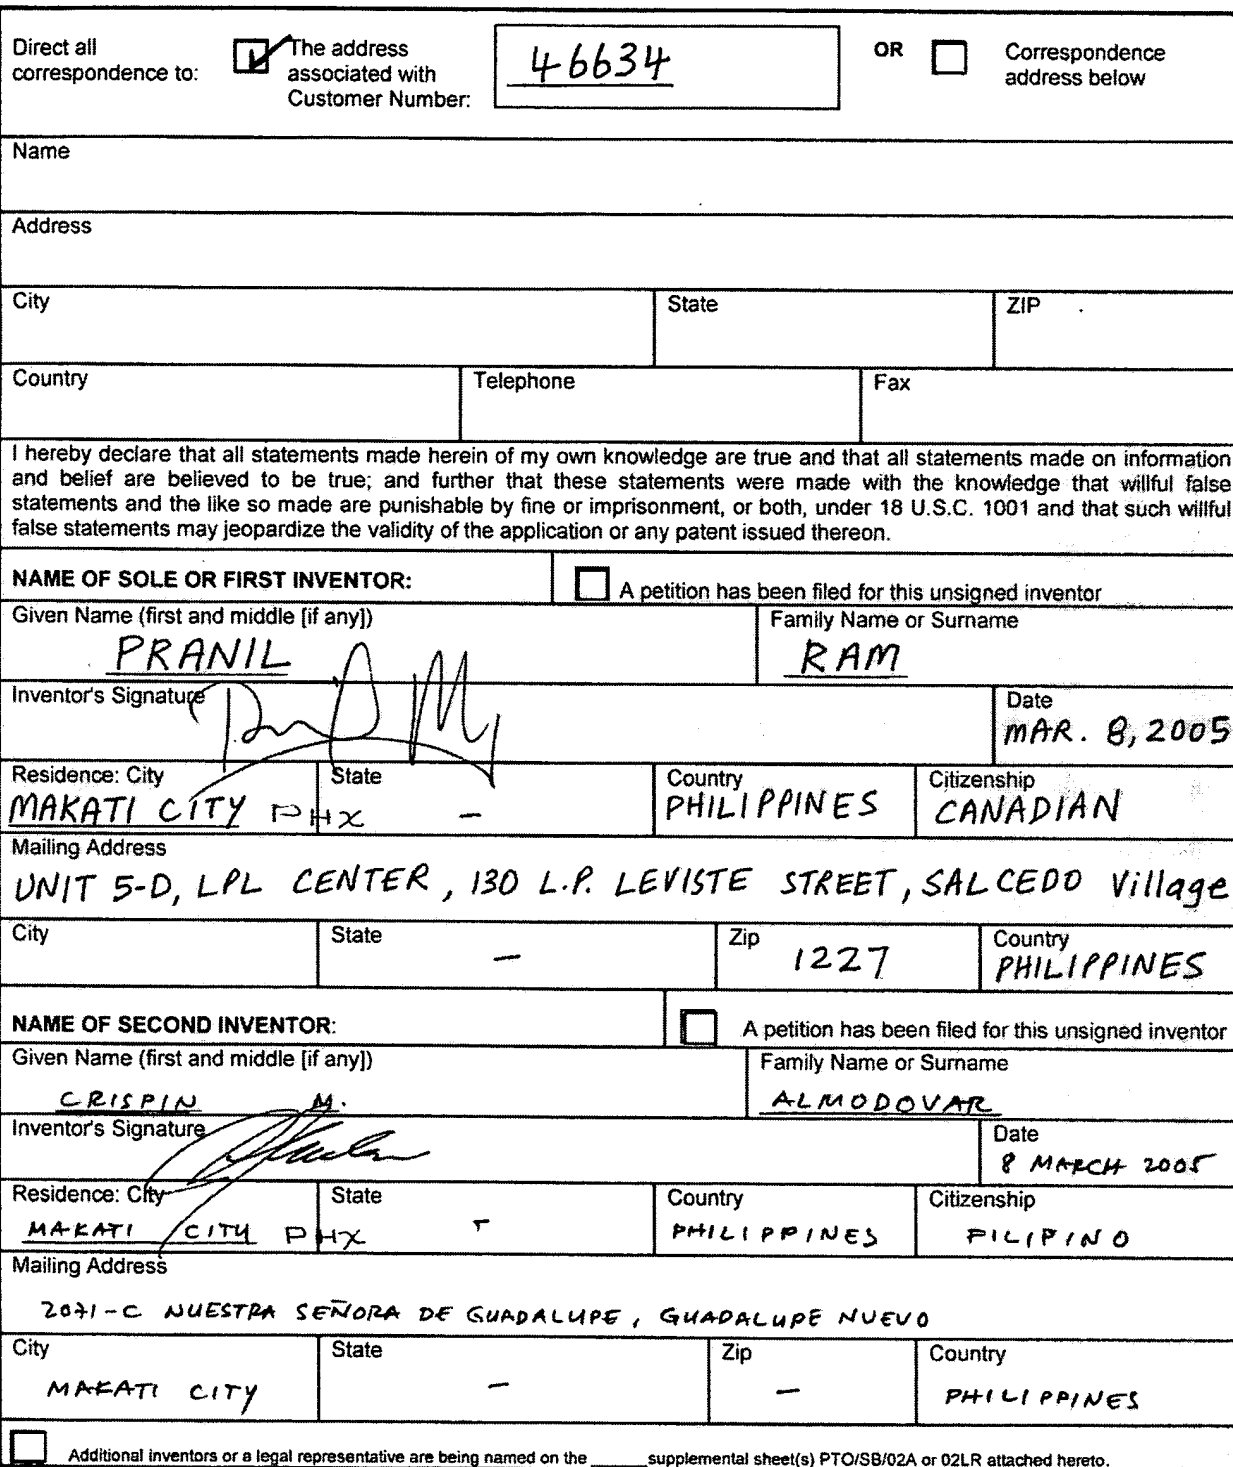 Direct all correspondence to: The address associated with Customer Number: 46634 OR Correspondence address below
Name
Address
City State ZIP
Country Telephone Fax
I hereby declare that all statements made herein of my own knowledge are true and that all statements made on information
and belief are believed to be true; and further that these statements were made with the knowledge that willful false
statements and the like so made are punishable by fine or imprisonment, or both, under 18 U.S.C. 1001 and that such willful
false statements may jeopardize the validity of the application or any patent issued thereon.
NAME OF SOLE OR FIRST INVENTOR: A petition has been filed for this unsigned inventor
Given Name (first and middle [if any]) Family Name or Surname
PRANIL RAM
Inventor's Signature Date
MAR. 8, 2005
Residence: City State Country Citizenship
MAKATI CITY PHX - PHILIPPINES CANADIAN
Mailing Address
UNIT 5-D, LPL CENTER, 130 L.P. LEVISTE STREET, SALCEDO Village
City State Zip Country
- 1227 PHILIPPINES
NAME OF SECOND INVENTOR: A petition has been filed for this unsigned inventor
Given Name (first and middle [if any]) Family Name or Surname
CRISPIN M. ALMODOVAR
Inventor's Signature Date
8 MARCH 2005
Residence: City State Country Citizenship
MAKATI CITY PHX - PHILIPPINES FILIPINO
Mailing Address
2071-C NUESTRA SEÑORA DE GUADALUPE, GUADALUPE NUEVO
City State Zip Country
MAKATI CITY - - PHILIPPINES
Additional inventors or a legal representative are being named on the ______supplemental sheet(s) PTO/SB/02A or 02LR attached hereto.